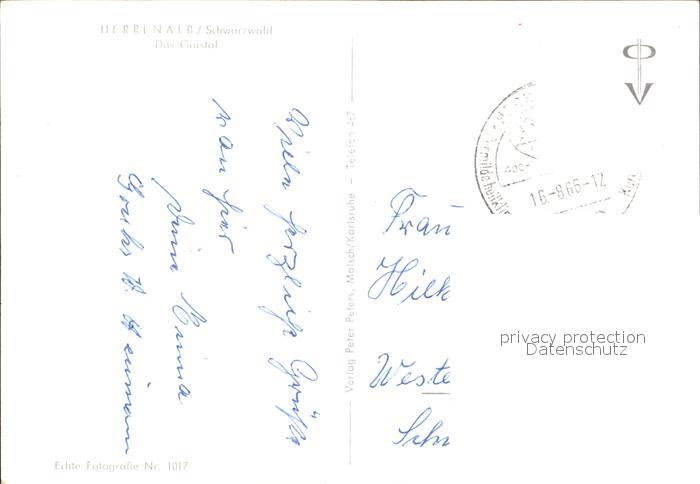 HERRENALB / Schwarzwald
Das Gaistal
Viele herzliche Grüße
von hier
Deine Emma
Verlag Peter Peters, Malsch/Karlsruhe – Telefon 467
16.-8.66-12
Frau
Hilk
Weste
Schn
privacy protection
Datenschutz
Echte Fotografie Nr. 1017